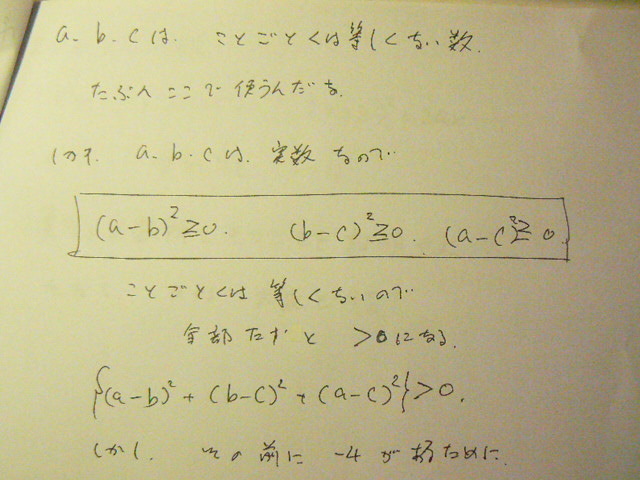 a. b. c は. ことごとくは等しくない数.
たぶん ここで 使うんだな.
しかも. a. b. c は. 実数 なので
(a-b)²≧0. (b-c)²≧0. (a-c)²≧0.
ことごとくは 等しくないので
全部 たすと >0 になる.
{(a-b)² + (b-c)² + (a-c)²}>0.
しかし. その 前に -4 が あるために.